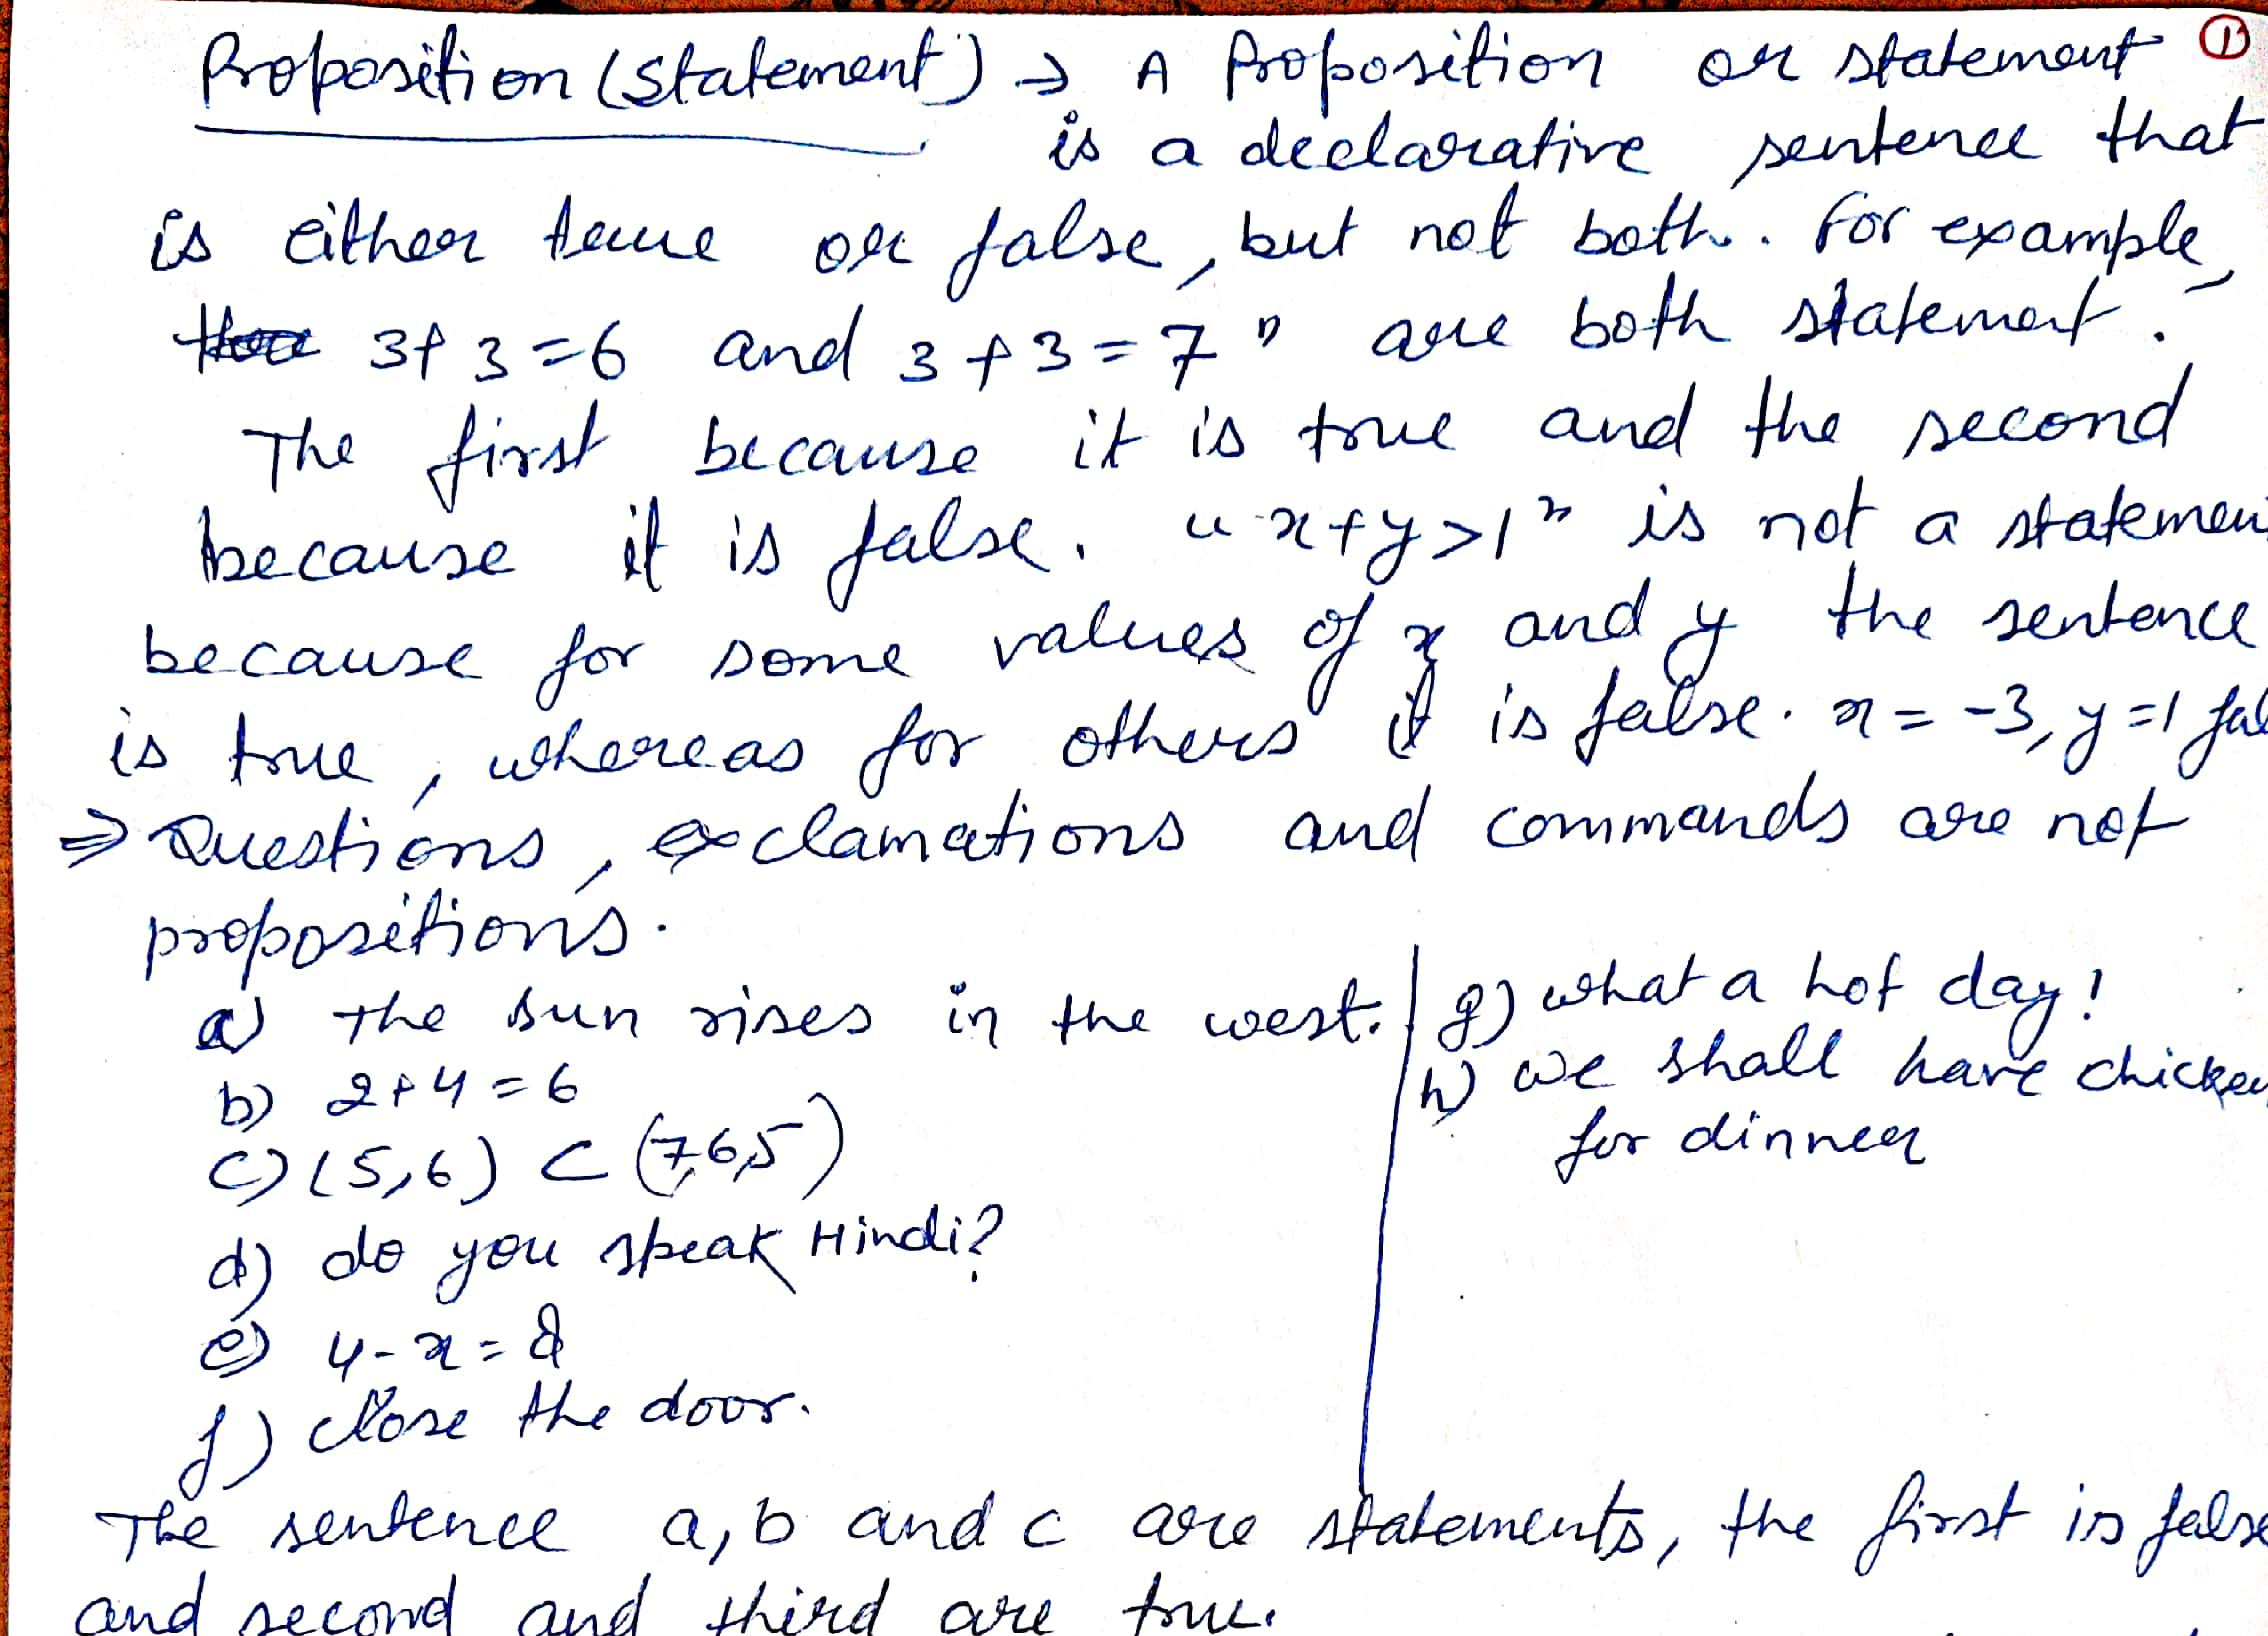 Proposition (Statement) → A Proposition or statement ①
is a declarative sentence that
is either true or false, but not both. For example,
3+3=6 and 3+3=7" are both statement.
The first because it is true and the second
because it is false. "x+y>1" is not a statemen
because for some values of x and y the sentence
is true, whereas for others it is false. x=-3, y=1 fal
⇒ Questions, exclamations and commands are not
propositions.
a) The sun rises in the west.
b) 2+4=6
c) (5,6) ⊂ (7,6,5)
d) do you speak Hindi?
e) 4-x=8
f) close the door.
g) what a hot day!
h) We shall have chicken
for dinner
The sentence a, b and c are statements, the first is false
and second and third are true.